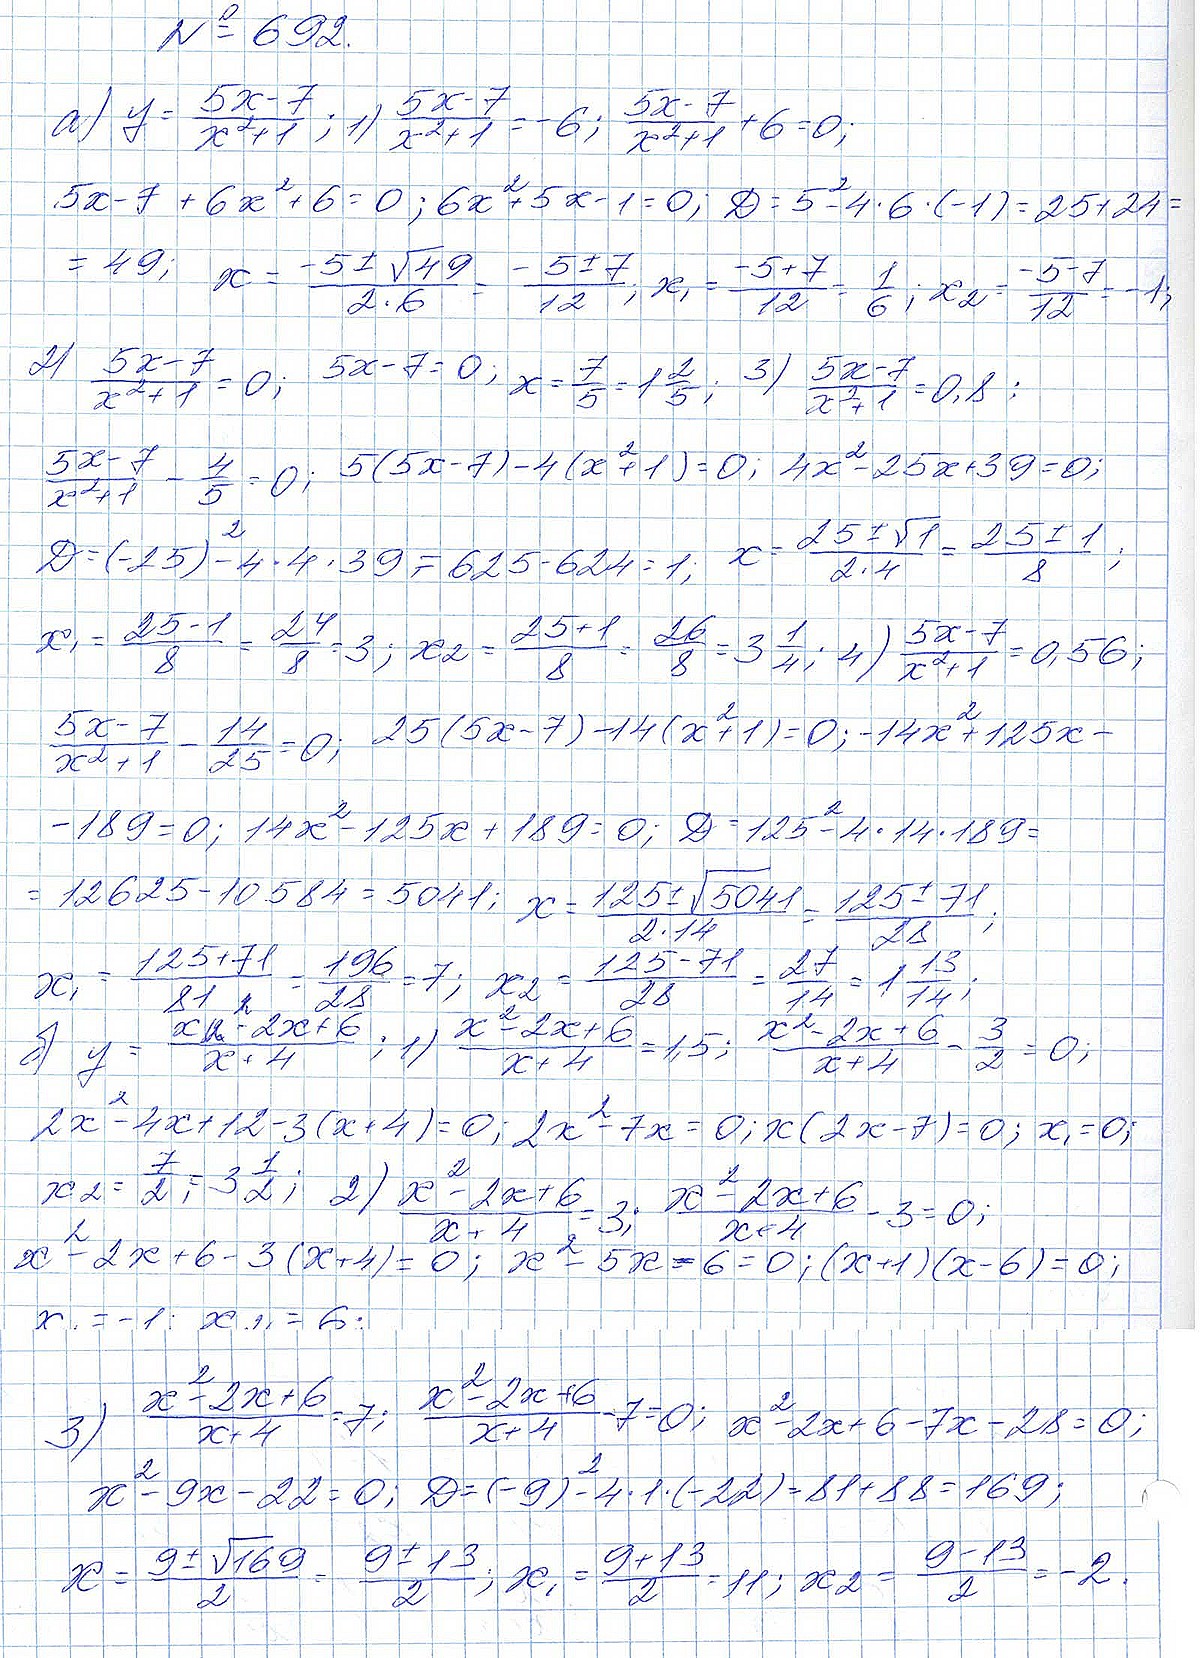 № 692.
а) y = (5x-7)/(x²+1); 1) (5x-7)/(x²+1) = -6; (5x-7)/(x²+1) + 6 = 0;
5x-7+6x²+6=0; 6x²+5x-1=0; D=5²-4·6·(-1)=25+24=
=49; x = (-5±√49)/(2·6) = (-5±7)/12; x₁ = (-5+7)/12 = 1/6; x₂ = (-5-7)/12 = -1;
2) (5x-7)/(x²+1) = 0; 5x-7=0; x = 7/5 = 1 2/5; 3) (5x-7)/(x²+1) = 0,8;
(5x-7)/(x²+1) - 4/5 = 0; 5(5x-7)-4(x²+1)=0; 4x²-25x+39=0;
D=(-25)²-4·4·39=625-624=1; x = (25±√1)/(2·4) = (25±1)/8;
x₁ = (25-1)/8 = 24/8 = 3; x₂ = (25+1)/8 = 26/8 = 3 1/4; 4) (5x-7)/(x²+1) = 0,56;
(5x-7)/(x²+1) - 14/25 = 0; 25(5x-7)-14(x²+1)=0; -14x²+125x-
-189=0; 14x²-125x+189=0; D=125²-4·14·189=
=12625-10584=5041; x = (125±√5041)/(2·14) = (125±71)/28;
x₁ = (125+71)/81 = 196/28 = 7; x₂ = (125-71)/28 = 27/14 = 1 13/14;
б) y = (x²-2x+6)/(x+4); 1) (x²-2x+6)/(x+4) = 1,5; (x²-2x+6)/(x+4) - 3/2 = 0;
2x²-4x+12-3(x+4)=0; 2x²-7x=0; x(2x-7)=0; x₁=0;
x₂ = 7/2; = 3 1/2; 2) (x²-2x+6)/(x+4) = 3; (x²-2x+6)/(x+4) - 3 = 0;
x²-2x+6-3(x+4)=0; x²-5x-6=0; (x+1)(x-6)=0;
x₁=-1; x₂=6;
3) (x²-2x+6)/(x+4) = 7; (x²-2x+6)/(x+4) - 7 = 0; x²-2x+6-7x-28=0;
x²-9x-22=0; D=(-9)²-4·1·(-22)=81+88=169;
x = (9±√169)/2 = (9±13)/2; x₁ = (9+13)/2 = 11; x₂ = (9-13)/2 = -2.